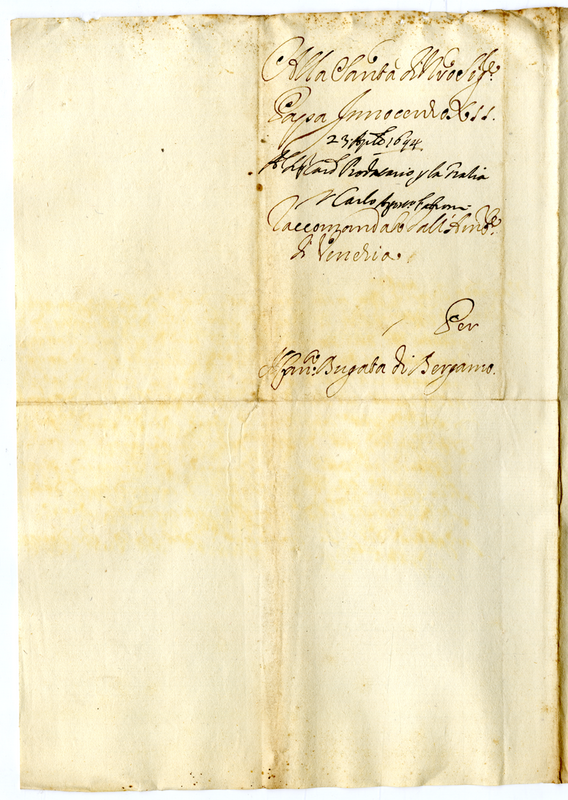 Alla Santà di Nro Sig.re
Papa Innocenzo XII.
23 Aple 1694
Al Card Prodatario p la Gratia
Carlo
Raccomandato dall'Amb.re
di Venetia
Per
Bugata di Bergamo.